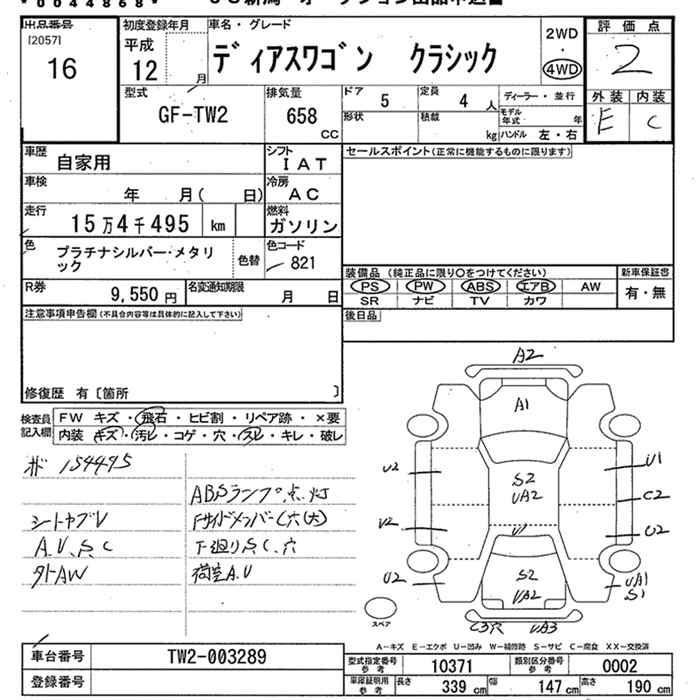 *0044868*
出品番号
[2057]
16
初度登録年月
平成
12 月
車名・グレード
ディアスワゴン クラシック
2WD
・
4WD
評価点
2
外装 内装
E C
型式
GF-TW2
排気量
658
CC
ドア 5
定員 4 人
ディーラー・並行
モデル年式 年
形状
積載 kg
ハンドル 左・右
車歴
自家用
シフト
IAT
セールスポイント(正常に機能するものに限ります)
車検
年 月( 日)
冷房
AC
走行
15万4千495 km
燃料
ガソリン
色
プラチナシルバー・メタリック
色替
色コード
821
装備品(純正品に限り○をつけてください)
新車保証書
PS PW ABS エアB AW
有・無
SR ナビ TV カワ
R券
9,550 円
名変通知期限
月 日
後日品
注意事項申告欄(不具合内容等は具体的に記入して下さい)
修復歴 有〔箇所 〕
検査員記入欄
FW キズ・飛石・ヒビ割・リペア跡・×要
内装 キズ・汚レ・コゲ・穴・スレ・キレ・破レ
154495
ABSランプ点灯
シートヤブレ
FサイドメンバーC穴(大)
A.U.点C
下廻り点C.穴
タトAW
荷室A.U
A2
A1
U2
U1
S2
UA2
C2
U2
U
U2
U2
S2
UA2
UA1
S1
スペア
C3穴
UA3
A-キズ E-エクボ U-凹み W-補修跡 S-サビ C-腐食 XX-交換済
車台番号
TW2-003289
登録番号
型式指定番号
参考
10371
類別区分番号
参考
0002
車庫証明用
参考
長さ 339 cm
幅 147 cm
高さ 190 cm